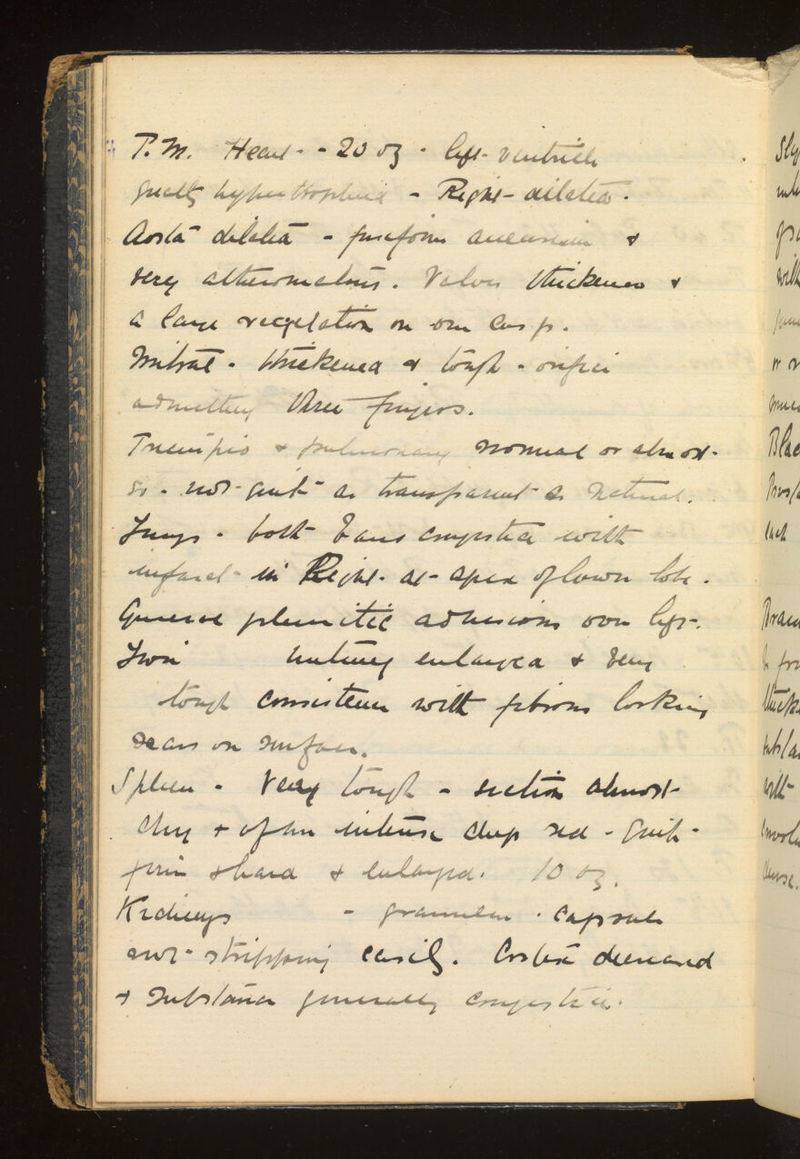 P.M. Heart - - 20 oz - left ventricle
greatly hypertrophied - Right - dilated.
Aorta dilated - fusiform aneurism &
very atheromatous. Valves thickened &
a large vegetation on one cusp.
Mitral - thickened & tough - orifice
admitting three fingers.
Tricuspid & pulmonary normal or almost
so - not quite as transparent as natural.
Lungs - both bases congested with
infarct in Right - at apex of lower lobe.
General pleuritic adhesions over left.
Liver enlarged & very
tough consistence with fibrous looking
scars on surface.
Spleen - Very tough - section almost
dry & of an intense deep red - Quite
firm & hard & enlarged. 10 oz.
Kidneys - granular - capsule
not stripping easily. Cortex
& substance generally congested.
Brain